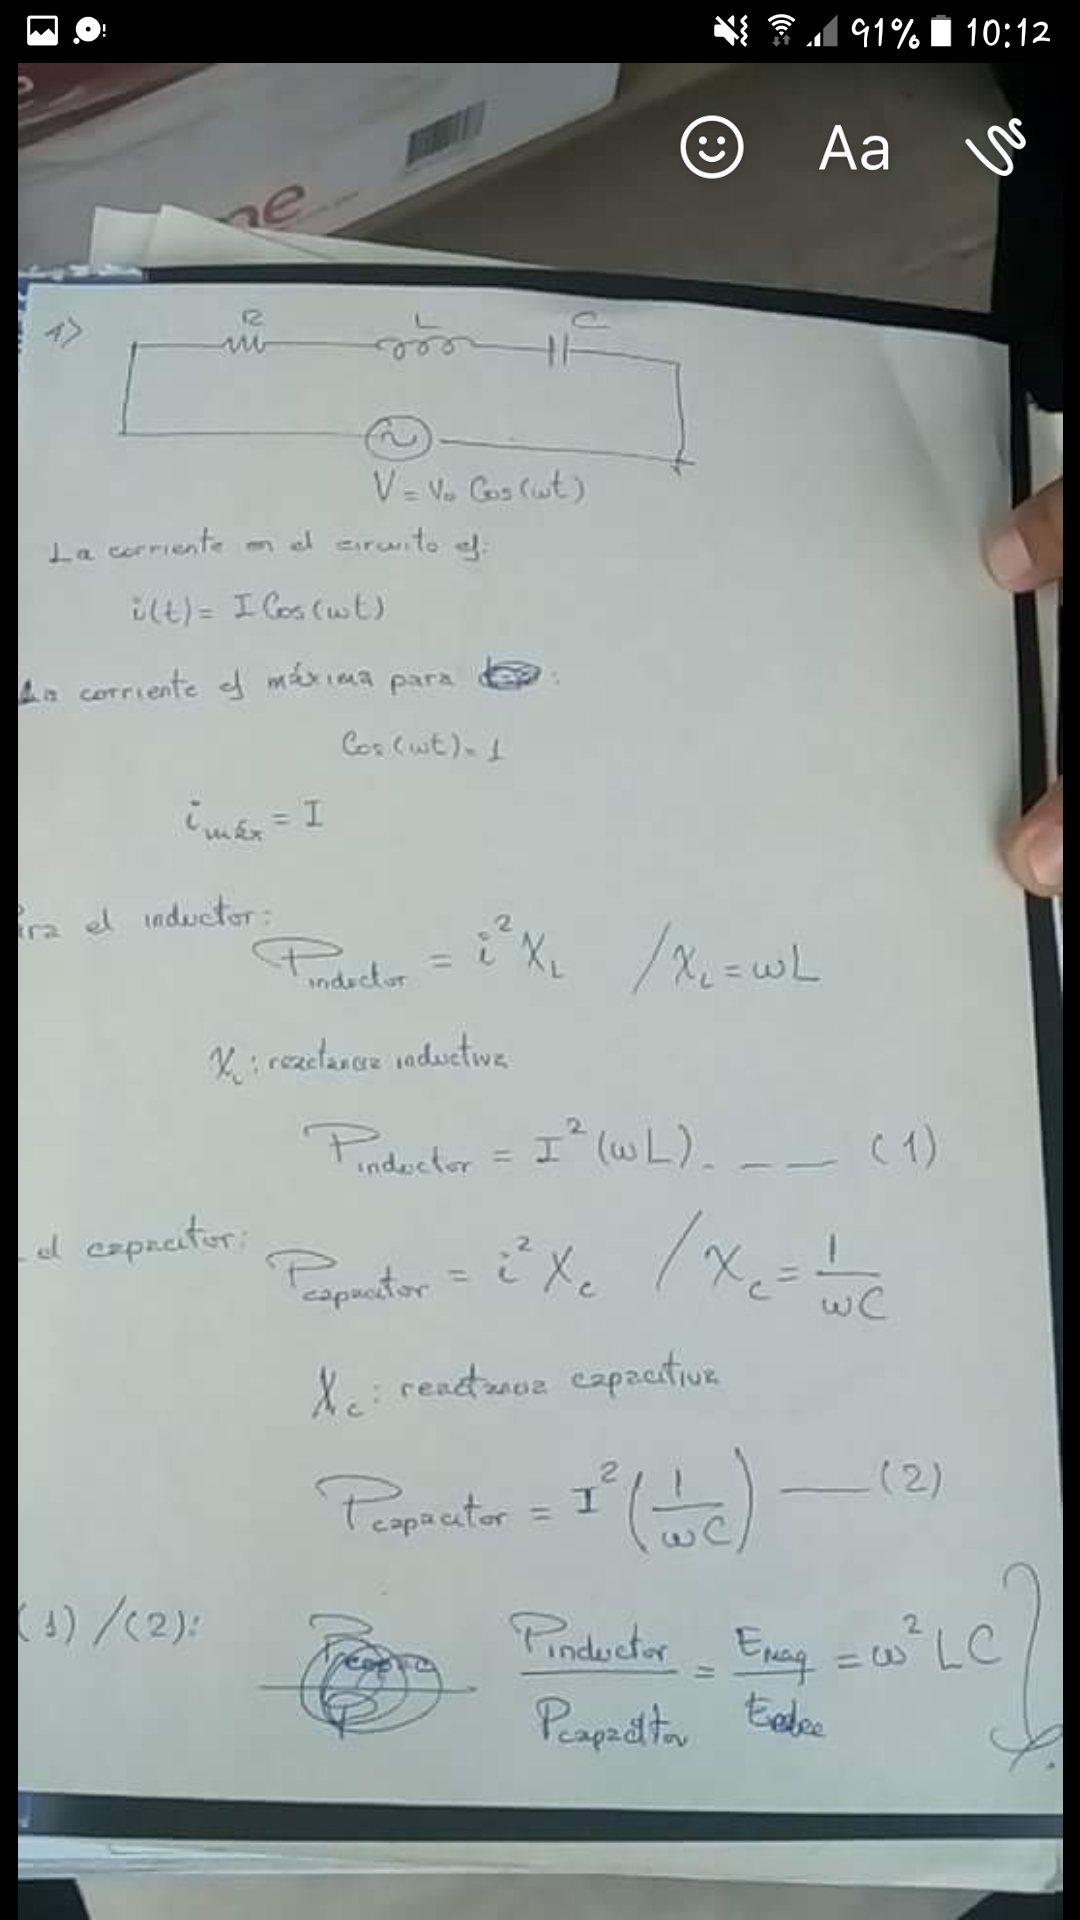 91% 10:12
Aa
ne
1)
R L C
V = V₀ Cos(ωt)
La corriente en el circuito es:
i(t) = I Cos(ωt)
La corriente es máxima para :
Cos(ωt) = 1
i máx = I
ara el inductor:
P inductor = i² X_L / X_L = ωL
X_L : reactancia inductiva
P inductor = I² (ωL) . _ _ __ (1)
el capacitor:
P capacitor = i² X_c / X_c = 1/ωC
X_c : reactancia capacitiva
P capacitor = I² (1/ωC) —— (2)
(1) / (2): P inductor / P capacitor = E Mag / = ω² LC